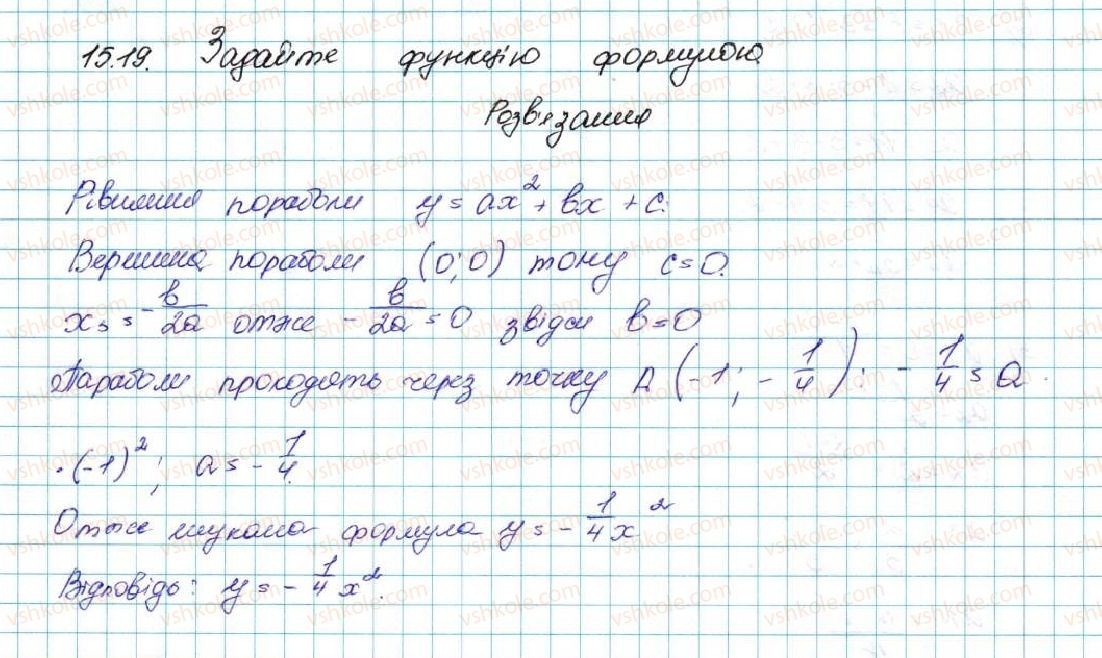 15.19. Задайте функцію формулою.
Розв'язання
Рівняння параболи y = ax² + bx + c.
Вершина параболи (0; 0) тому c = 0.
x₀ = -b/2a отже -b/2a = 0 звідси b = 0
Параболи проходять через точку A (-1; -1/4): -1/4 = a ·
· (-1)²; a = -1/4.
Отже шукана формула y = -1/4 x²
Відповідь: y = -1/4 x².